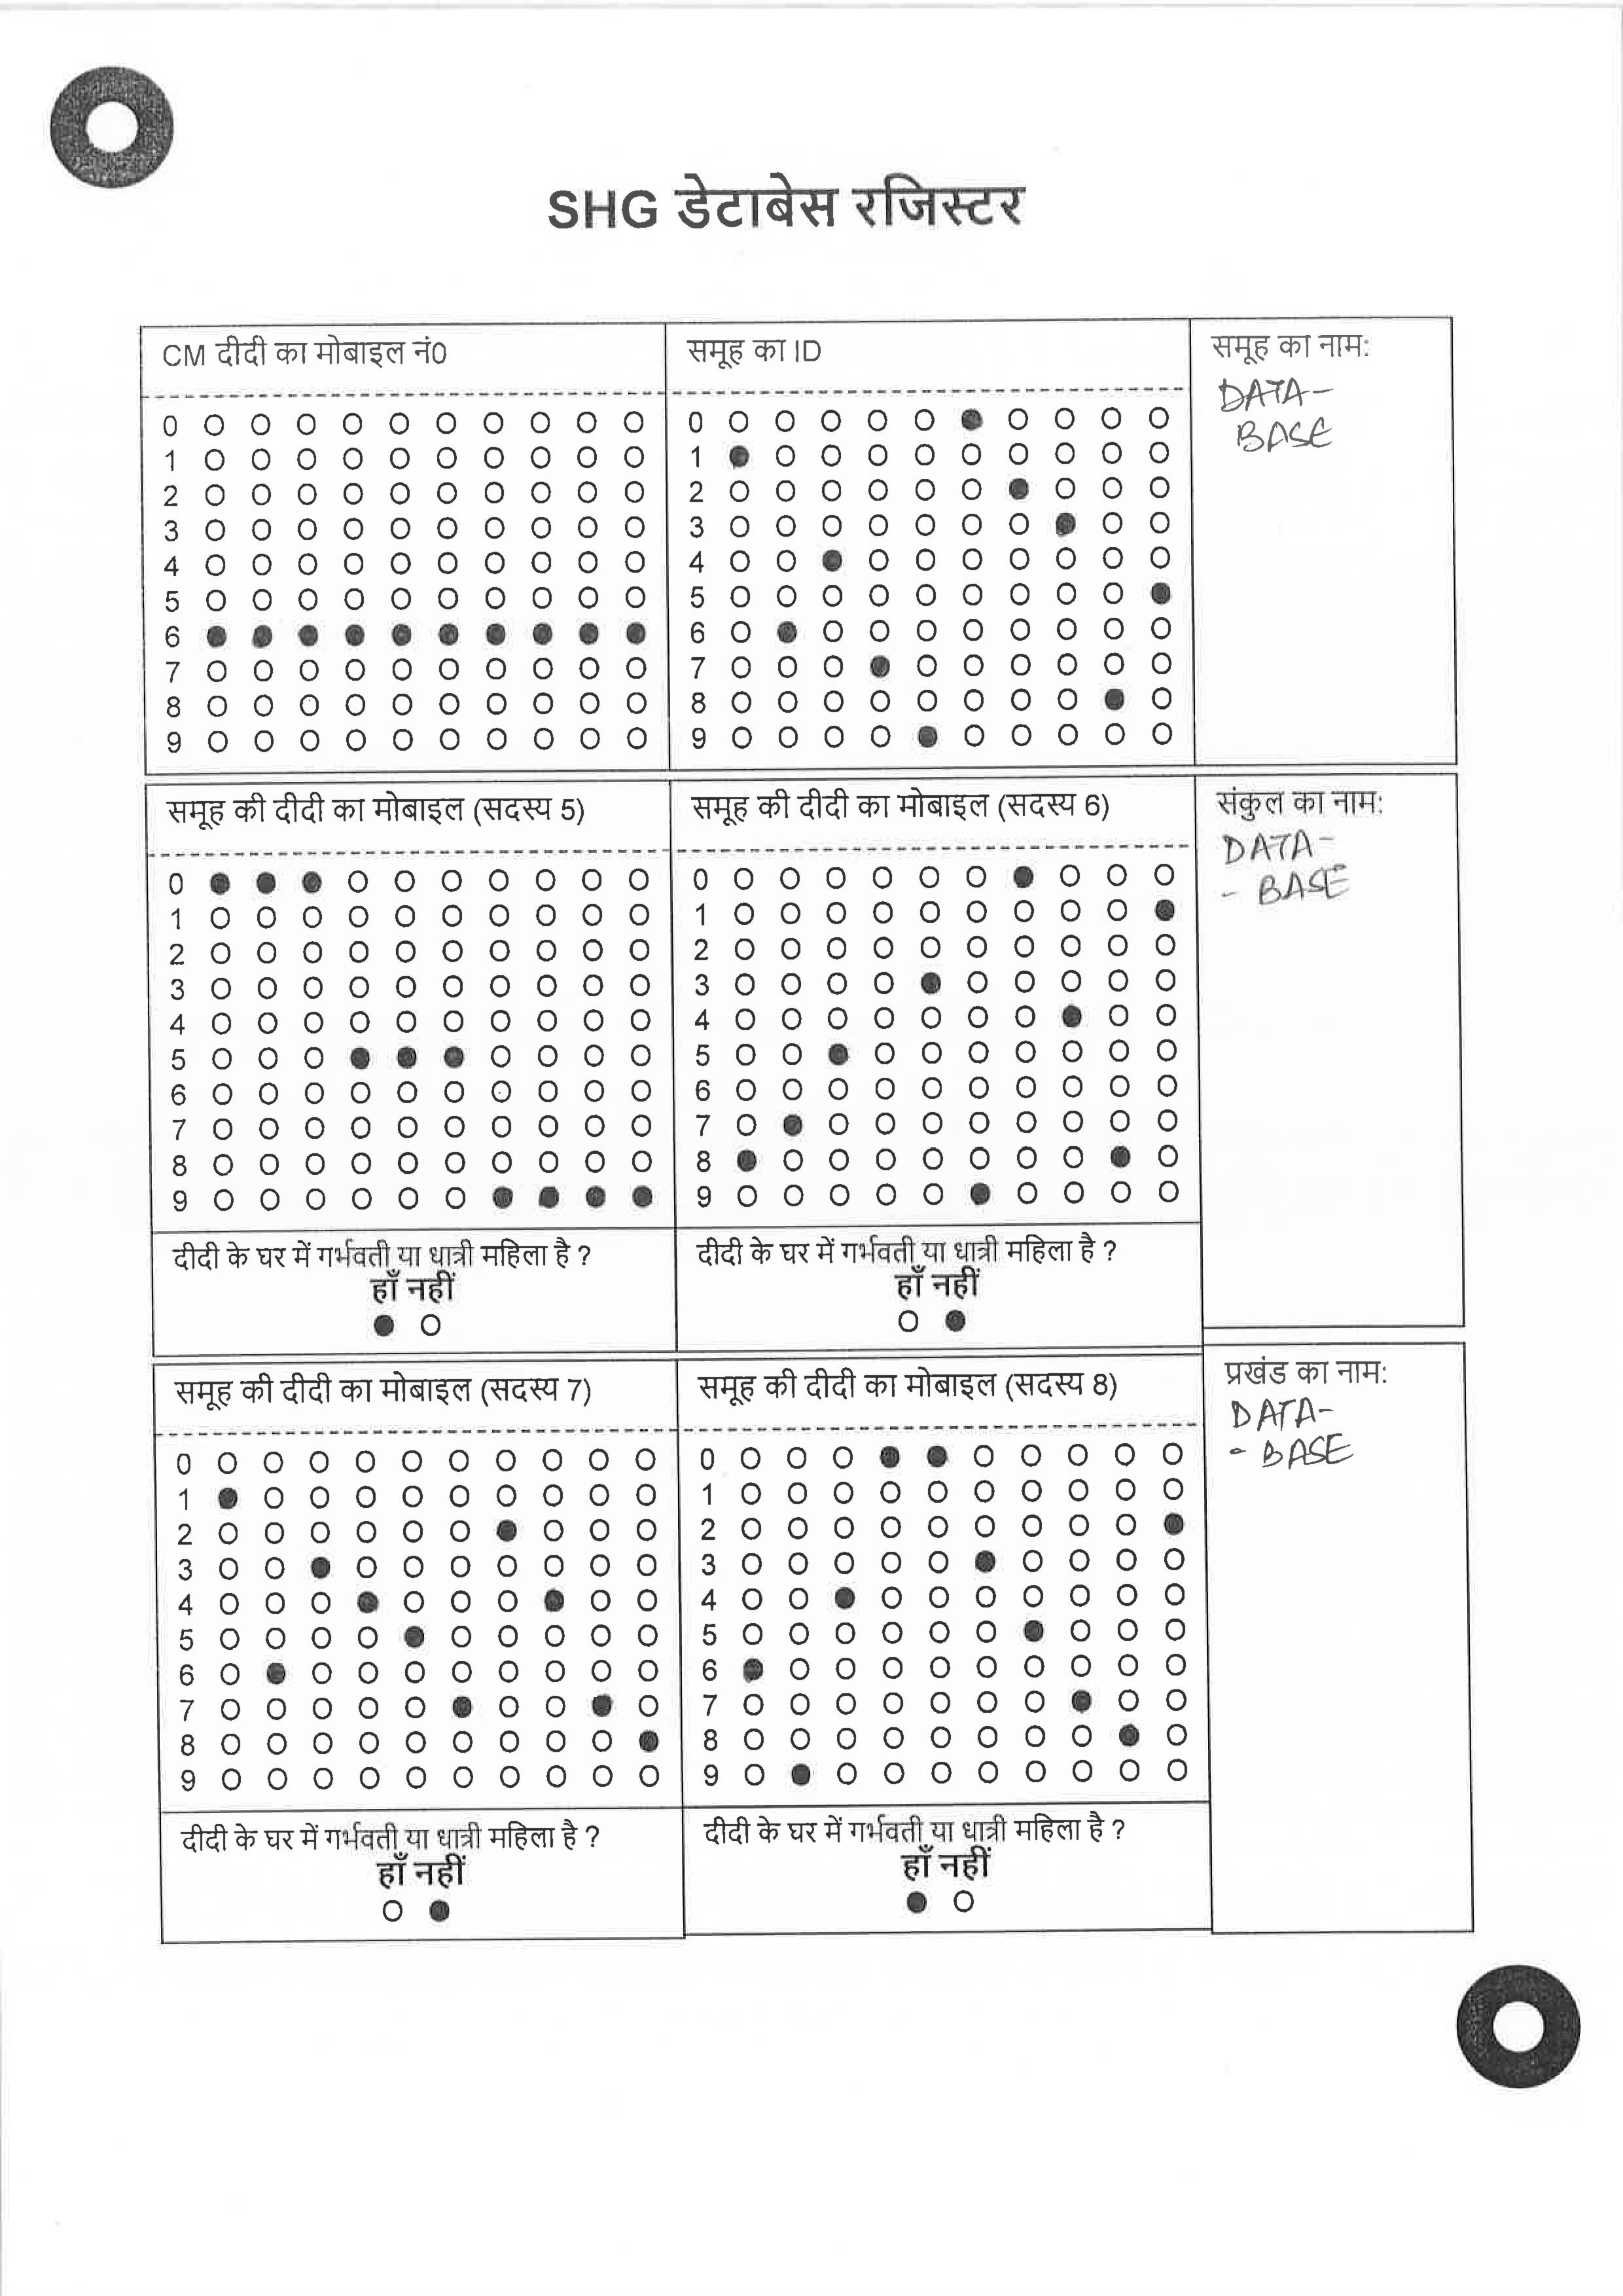 SHG डेटाबेस रजिस्टर
CM दीदी का मोबाइल नं0
0
1
2
3
4
5
6
7
8
9
समूह का ID
0
1
2
3
4
5
6
7
8
9
समूह का नाम:
DATA-
BASE
समूह की दीदी का मोबाइल (सदस्य 5)
0
1
2
3
4
5
6
7
8
9
दीदी के घर में गर्भवती या धात्री महिला है ?
हाँ नहीं
समूह की दीदी का मोबाइल (सदस्य 6)
0
1
2
3
4
5
6
7
8
9
दीदी के घर में गर्भवती या धात्री महिला है ?
हाँ नहीं
संकुल का नाम:
DATA-
- BASE
समूह की दीदी का मोबाइल (सदस्य 7)
0
1
2
3
4
5
6
7
8
9
दीदी के घर में गर्भवती या धात्री महिला है ?
हाँ नहीं
समूह की दीदी का मोबाइल (सदस्य 8)
0
1
2
3
4
5
6
7
8
9
दीदी के घर में गर्भवती या धात्री महिला है ?
हाँ नहीं
प्रखंड का नाम:
DATA-
- BASE